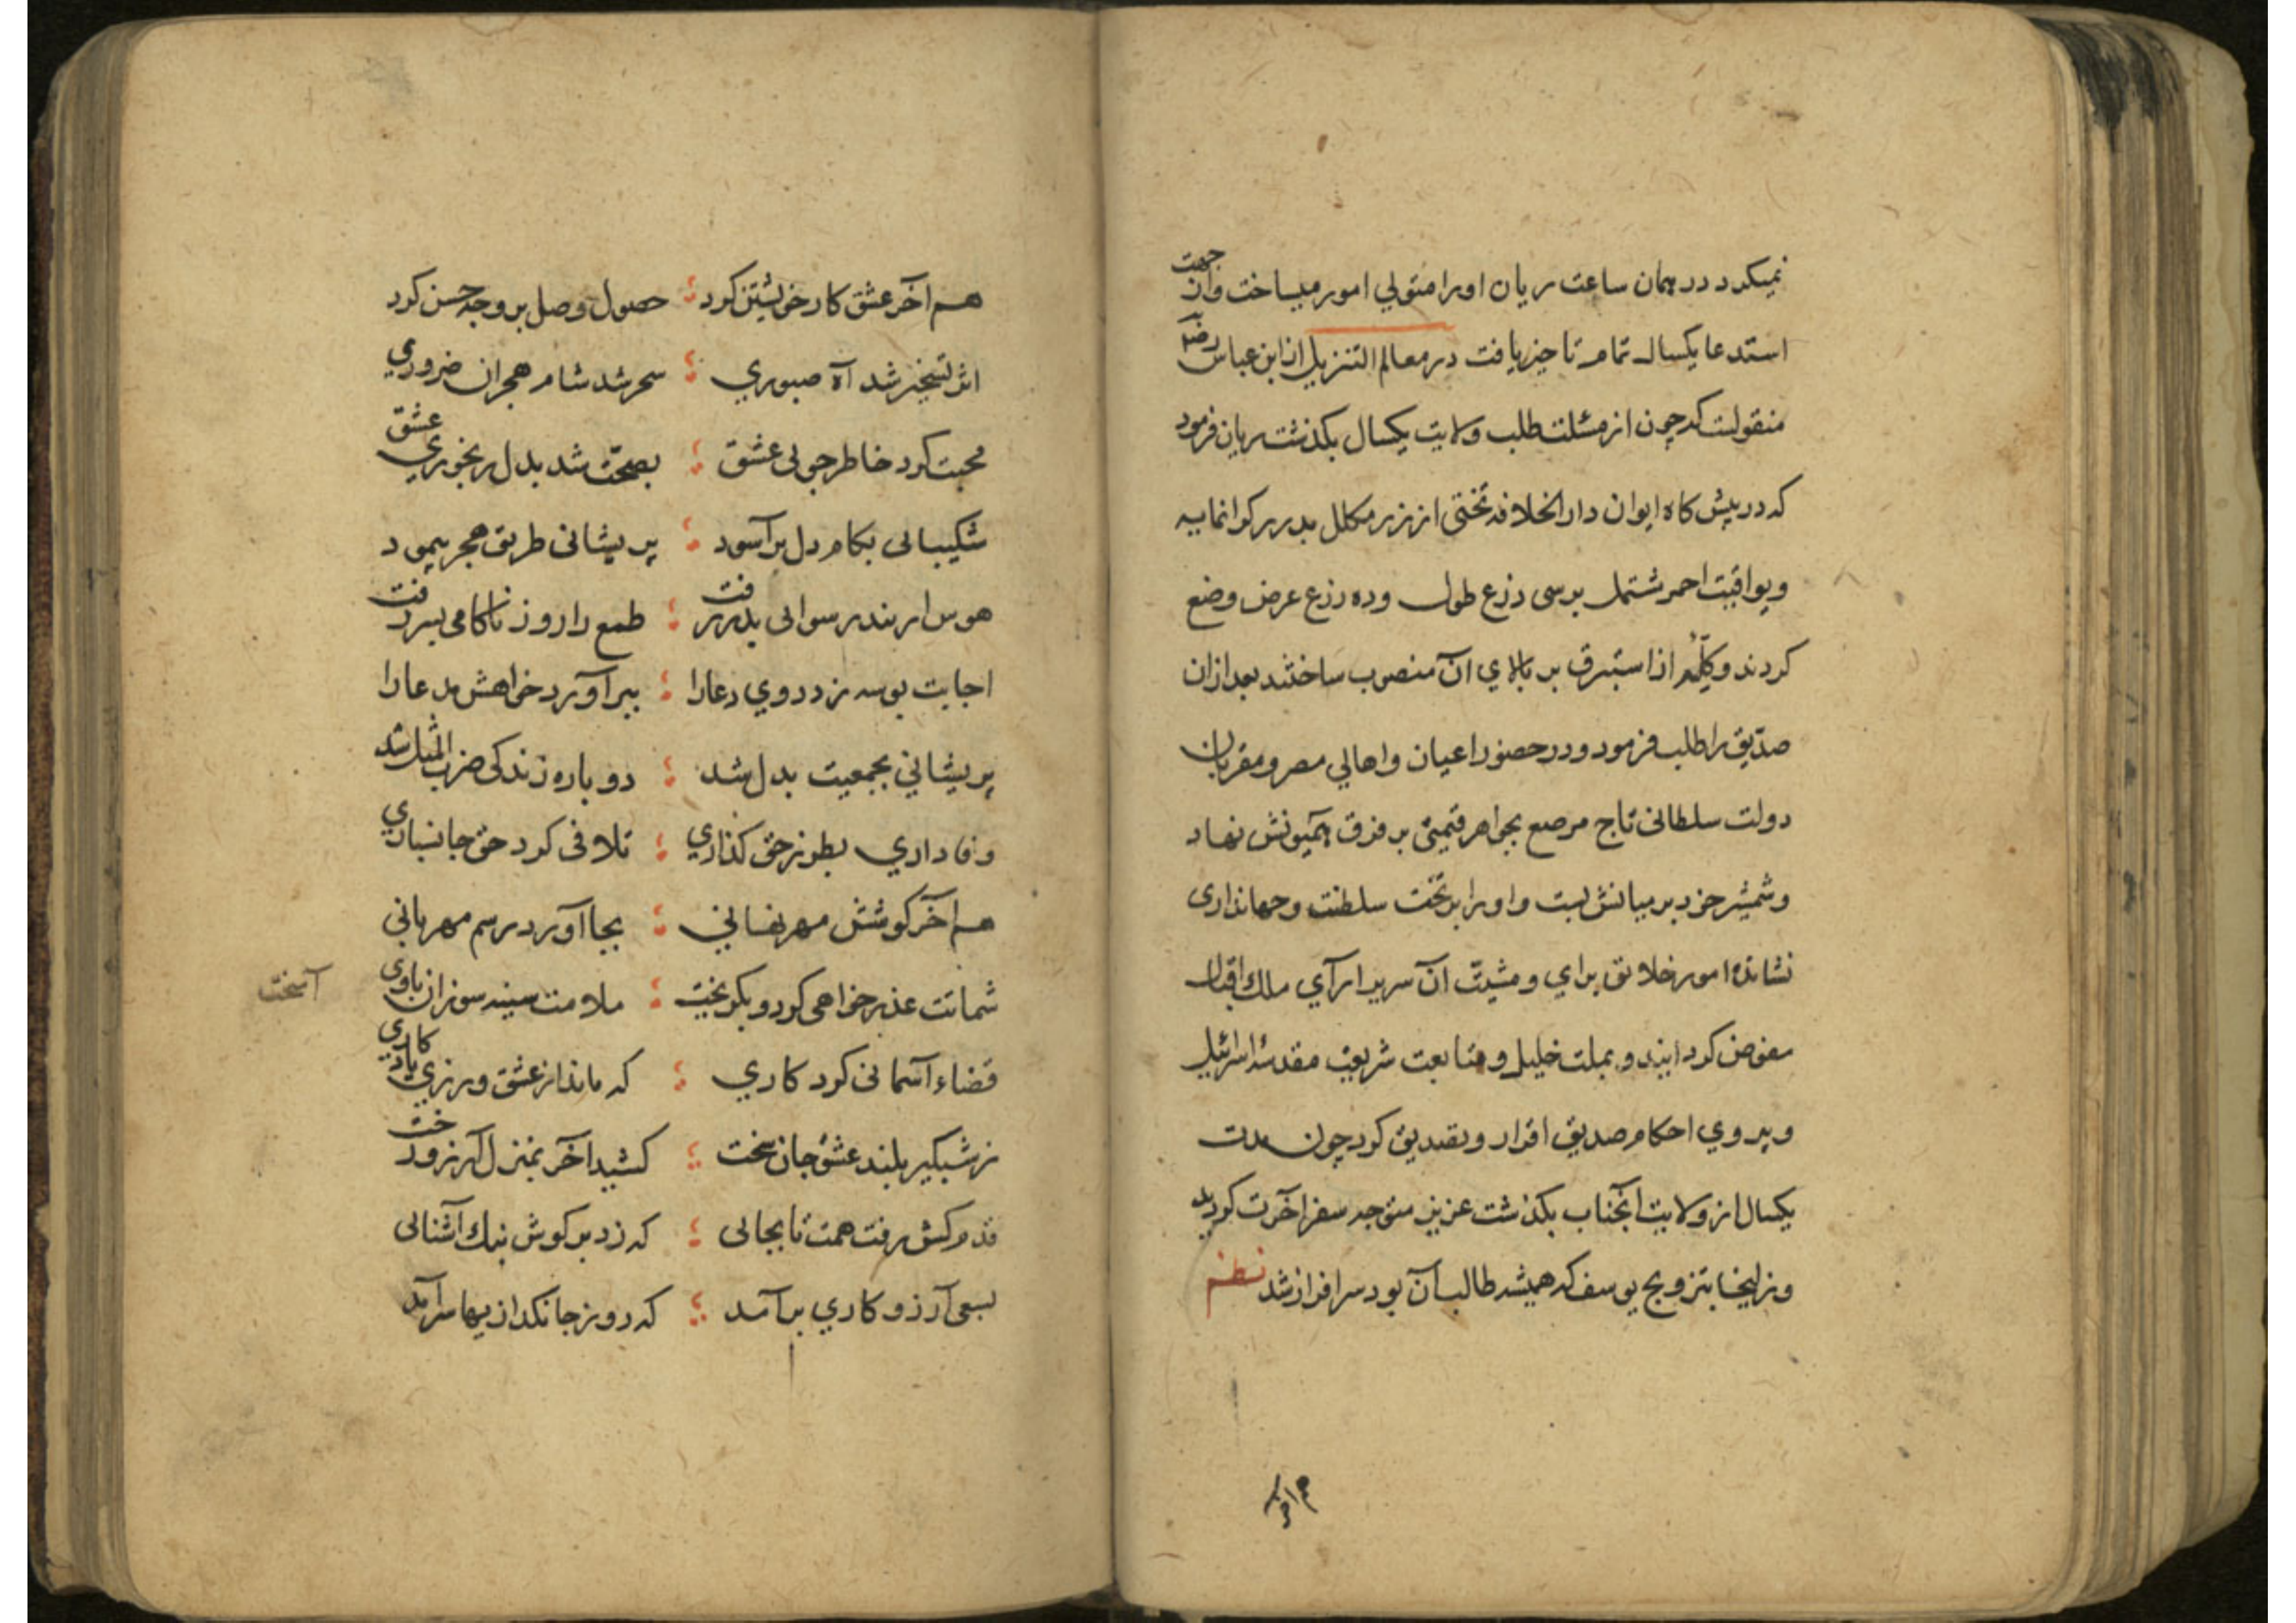 نمیکرد در همان ساعت ریان اورا متولي امور میساخت وازین جهت
استدعا یکسال تمام تاخیر یافت در معالم التنزیل از ابن عباس رضه
منقولست که چون از مسئلت طلب ولایت یکسال بکذشت ریان فرمود
که در پیش کاه ایوان دار الخلافه تختی از زر مکلل بدرر کرانمایه
ویواقیت احمر مشتمل بر سی ذرع طول وده ذرع عرض وضع
کردند و از استبرق بر بالاي آن منصوب ساختند بعد ازان
صدّیق را طلب فرمود ودر حضور اعیان واهالي مصر ومقربان
دولت سلطانی تاج مرصع بجواهر قیمتی بر فرق همیونش نهاد
وشمشیر خود بر میانش بست واورا بر تخت سلطنت وجهانداری
نشانده امور خلائق براي ومشیّت آن سریر ارآي ملك اقبال
مفوض کردانیند و بملت خلیل ومتابعت شریعت مقدسه اسرائیل
وپیروي احکام صدیق اقرار وتصدیق کرد چون مدت
یکسال از ولایت آنجناب بکذشت عزیز متوجه سفر آخرت کردید
وزلیخا بتزویج یوسف که همیشه طالب آن بود سرافراز شد نظم
هم آخر
هم آخر عشق کار خویشتن کرد ؛ حصول وصل بر وجه حسن کرد
اثر تسخیر شد آه صبوري ؛ سحر شد شام هجران ضروري
محبت کرد خاطر جوئی عشق ؛ بصحّت شد بدل رنجوري عشق
شکیبائی بکام دل بر آسود ؛ پریشانی طریق هجر پیمود
هوس از بند رسوائی بدر رفت ؛ طمع را روز ناکامی بسر رفت
اجابت بوسه زد روي دعارا ؛ ببر آورد خواهش مدعارا
پریشاني بجمعیت بدل شد ؛ دوباره زندکی ضرب المثل شد
وفاداري بطرز حق کذاري ؛ تلافی کرد حق جانسپاري
هم آخر کوشش مهر نهاني ؛ بجا آورد رسم مهرباني
شماتت عذر خواهی کرد وبکریخت ؛ ملامت سینه سوزان باوی
آمیخت
قضاء آسمانی کرد کاري ؛ که ماند از عشق ورزي یادکاري
ز شبکیر بلند عشق جان سخت ؛ کشید آخر بمنزل آرزو رخت
قدم کش رفت همت تا بجائی ؛ که زد بر کوش بنك آشنائی
بسعی آرزو کاري بر آمد ؛ که روز جانکدازیها سر آمد